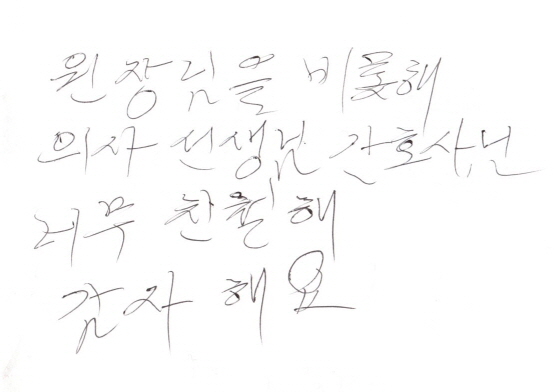 원장님을 비롯해
의사 선생님 간호사님
너무 친절해
감사해요